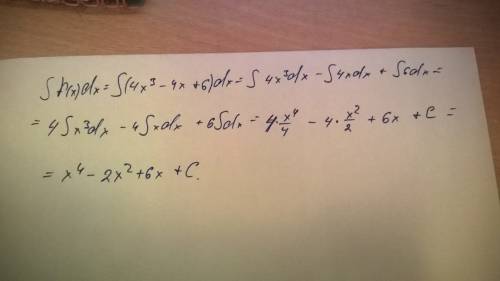 ∫h(x)dx = ∫(4x³ - 4x + 6)dx = ∫4x³dx - ∫4xdx + ∫6dx =
= 4∫x³dx - 4∫xdx + 6∫dx = 4·x⁴/4 - 4·x²/2 + 6x + C =
= x⁴ - 2x² + 6x + C.